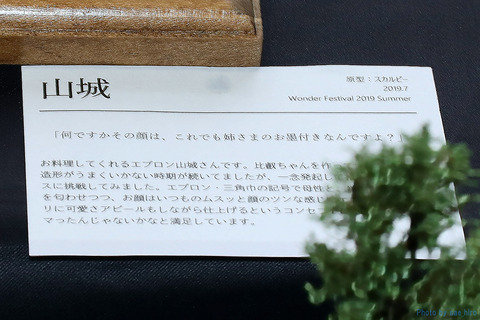 山城
原型：スカルピー
2019.7
Wonder Festival 2019 Summer
「何ですかその顔は、これでも姉さまのお墨付きなんですよ？」
お料理してくれるエプロン山城さんです。比叡ちゃんを作っ
造形がうまくいかない時期が続いてましたが、一念発起して
スに挑戦してみました。エプロン・三角巾の記号で母性と、
を匂わせつつ、お顔はいつものムスッと顔のツンな感じ
りに可愛さアピールもしながら仕上げるというコンセ
マったんじゃないかなと満足しています。